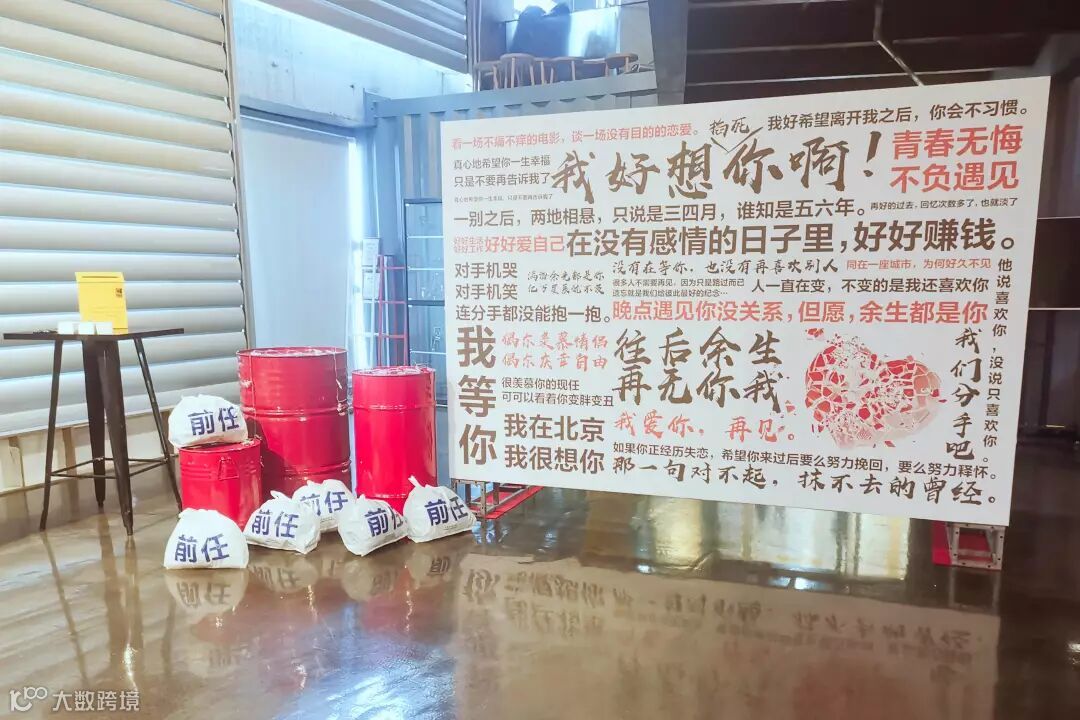 看一场不痛不痒的电影，谈一场没有目的的恋爱。
掐死
我好希望离开我之后，你会不习惯。
真心地希望你一生幸福
只是不要再告诉我了
我好想你啊！
青春无悔
不负遇见
一别之后，两地相悬，只说是三四月，谁知是五六年。
再好的过去，回忆次数多了，也就淡了
好好生活
好好工作
好好爱自己
在没有感情的日子里，好好赚钱。
对手机哭
对手机笑
没有在等你，也没有再喜欢别人
同在一座城市，为何好久不见
很多人不需要再见，因为只是路过而已
遗忘就是我们给彼此最好的纪念…
人一直在变，不变的是我还喜欢你
连分手都没能抱一抱。
晚点遇见你没关系，但愿，余生都是你
他说喜欢你，没说只喜欢你。
我等你
偶尔羡慕情侣
偶尔庆幸自由
往后余生
再无你我
很羡慕你的现任
可可以看着你变胖变丑
我们分手吧。
我在北京
我很想你
我爱你，再见。
如果你正经历失恋，希望你来过后要么努力挽回，要么努力释怀。
那一句对不起，抹不去的曾经。
前任
前任
前任
前任
前任
前任
大数跨境